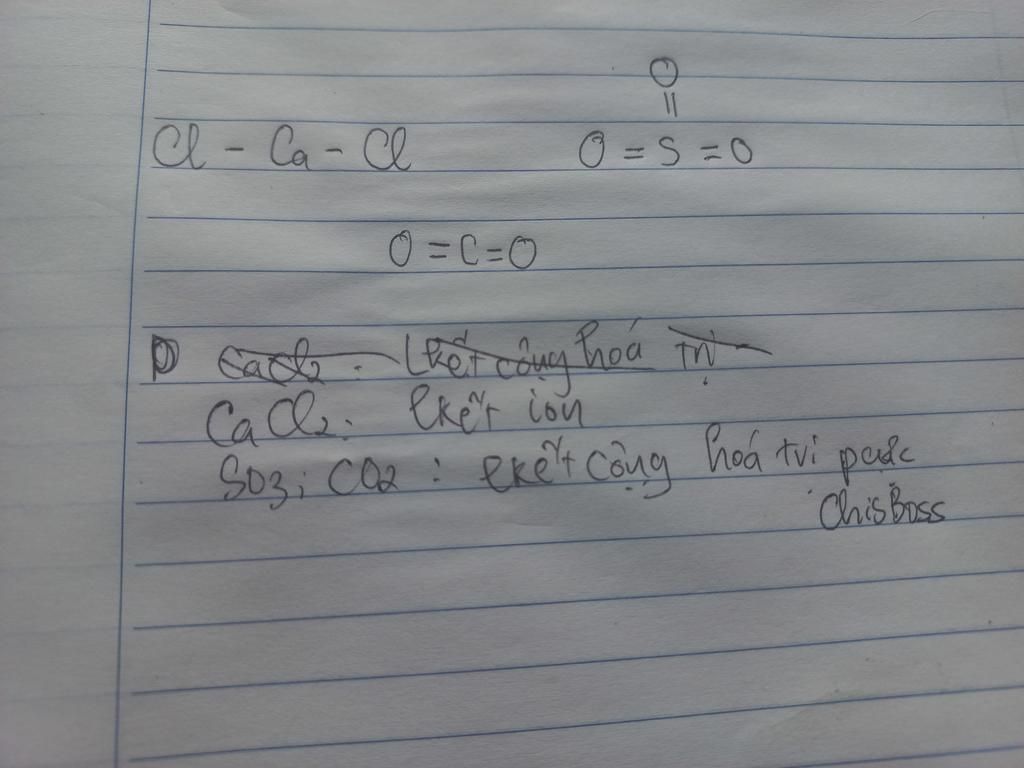 O
||
Cl - Ca - Cl O = S = O
O = C = O
CaCl2 : lkết cộng hoá trị
CaCl2: lkết ion
SO3; CO2 : lkết cộng hoá trị
ChisBoss